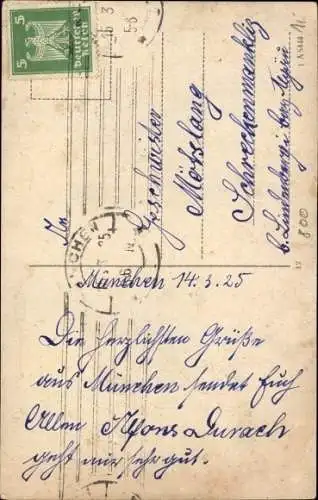 5
5
Deutsches
Reich
3
5-6
An
Geschwister
Mötzlang
Schreckenmanklitz
b. Lindenberg i. bay. Allgäu
800
München 14.3.25
Die herzlichsten Grüße
aus München sendet Euch
Allen Alfons Durach
geht mir sehr gut.